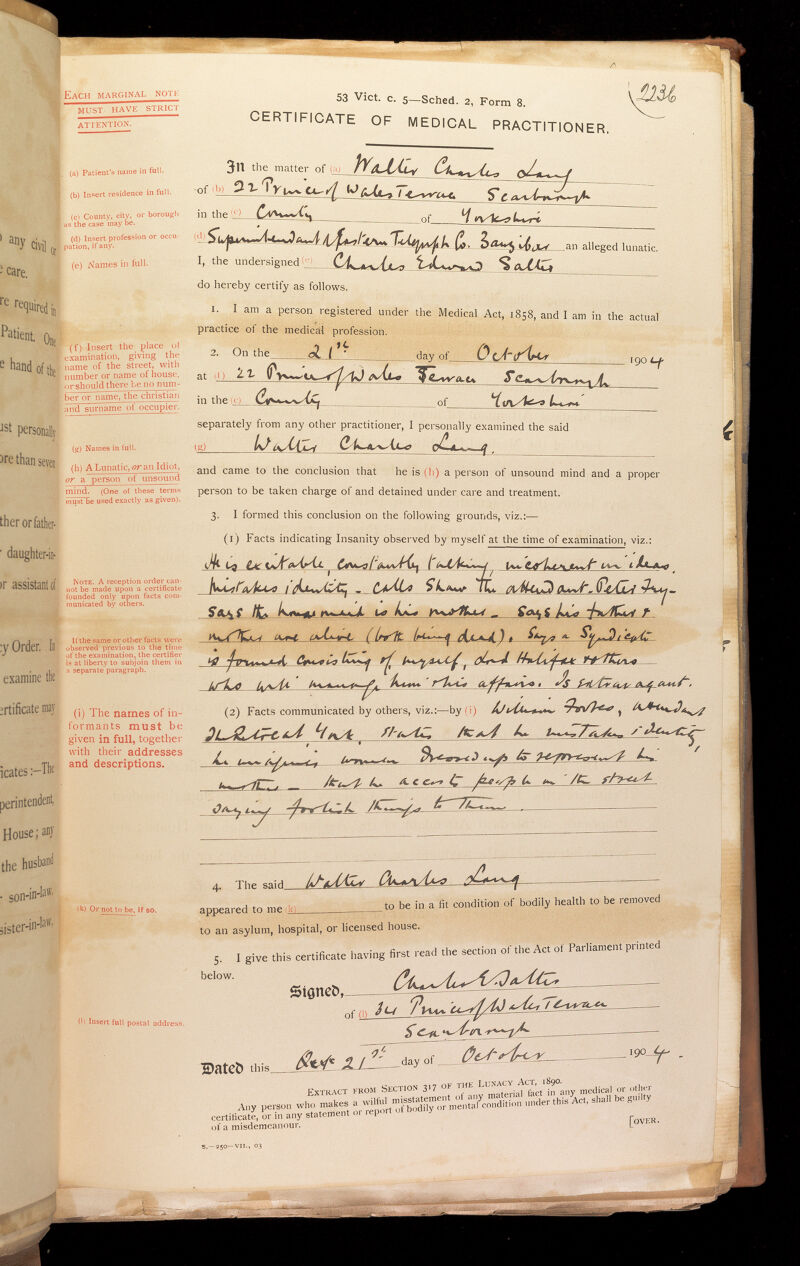 2236
53 Vict. c. 5—Sched. 2, Form 8.
CERTIFICATE OF MEDICAL PRACTITIONER.
EACH MARGINAL NOTE
MUST HAVE STRICT
ATTENTION.
(a) Patient's name in full.
(b) Insert residence in full.
(c) County, city, or borough
as the case may be.
(d) Insert profession or occu-
pation, if any.
(e) Names in full.
In the matter of (a) Walter Charles Lang
of (b) 22 Prince of Wales Terrace Scarborough
in the (c) County of Yorkshire
(d) Superintendant Eastern Telegraph Co. Zanzibar an alleged lunatic.
I, the undersigned (e) Charles Edward Salter
do hereby certify as follows.
1. I am a person registered under the Medical Act, 1858, and I am in the actual
practice of the medical profession.
(f) Insert the place of
examination, giving the
name of the street, with
number or name of house,
or should there be no num-
ber or name, the christian
and surname of occupier.
2. On the 21st day of October 1904
at (f) 22 Prince of Wales Terrace Scarborough
in the (c) County of Yorkshire
separately from any other practitioner, I personally examined the said
(g) Names in full.
(g) Walter Charles Lang.
(h) A Lunatic, or an Idiot,
or a person of unsound
mind. (One of these terms
must be used exactly as given).
and came to the conclusion that he is (h) a person of unsound mind and a proper
person to be taken charge of and detained under care and treatment.
3. I formed this conclusion on the following grounds, viz.:—
(1) Facts indicating Insanity observed by myself at the time of examination, viz.:
NOTE. A reception order can-
not be made upon a certificate
founded only upon facts com-
municated by others.
He is excitable, constantly talking, incoherent in ideas.
Mistakes identity - calls Shaw the attendant Peter Fry -
says the housemaid is his mother - says his father &
mother are alive (both being dead). Says a Syndicate
is formed consisting of myself, Lord Halifax & others
who will manage him & his affairs. Is extravagant.
If the same or other facts were
observed previous to the time
of the examination, the certifier
is at liberty to subjoin them in
a separate paragraph.
(i) The names of in-
formants must be
given in full, together
with their addresses
and descriptions.
(2) Facts communicated by others, viz.:—by (i) William Forbes, attendant
The Retreat York, states that he mistakes identity,
he imagines women dressed up to represent his
mother - that he accosts people in the street
saying foolish things to them.
4. The said Walter Charles Lang
(k) Or not to be, if so.
appeared to me (k) to be in a fit condition of bodily health to be removed
to an asylum, hospital, or licensed house.
5. I give this certificate having first read the section of the Act of Parliament printed
below.
Signed, Charles E. Salter
(l) Insert full postal address.
of (l) 34 Prince of Wales Terrace
Scarborough
Dated this 21st day of October 1904.
EXTRACT FROM SECTION 317 OF THE LUNACY ACT, 1890.
Any person who makes a wilful misstatement of any material fact in any medical or other
certificate, or in any statement or report of bodily or mental condition under this Act, shall be guilty
of a misdemeanour.
[OVER.
S.—250—VII., 03
any civil or
care.
re required in
Patient. One
e hand of the
ust personally
ore than seven
ther or father-
daughter-in-
or assistant of
y Order. In
examine the
ertificate may
icates:—The
perintendent
House; any
the husband
son-in-law,
sister-in-law.